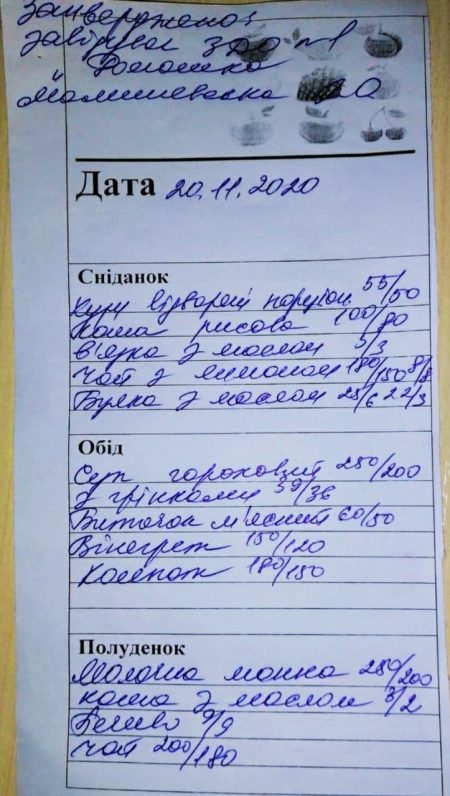 Затверджено:
завідувач ЗДО №1
"Ромашка"
Малишевська
Дата 20.11.2020
Сніданок
Кури відварені порціон 55/50
Каша рисова 100/80
в'язка з маслом 5/3
Чай з лимоном 180/150 8/8
Булка з маслом 25/6 22/3
Обід
Суп гороховий 250/200
з грінками 39/36
Биточок м'ясний 60/50
Вінегрет 150/120
Компот 180/150
Полуденок
Молочна манна 250/200
каша з маслом 3/2
Печиво 9/9
Чай 200/180